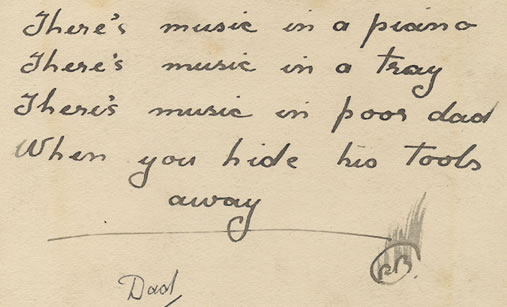 There's music in a piano
There's music in a tray
There's music in poor dad
When you hide his tools
away
Dad